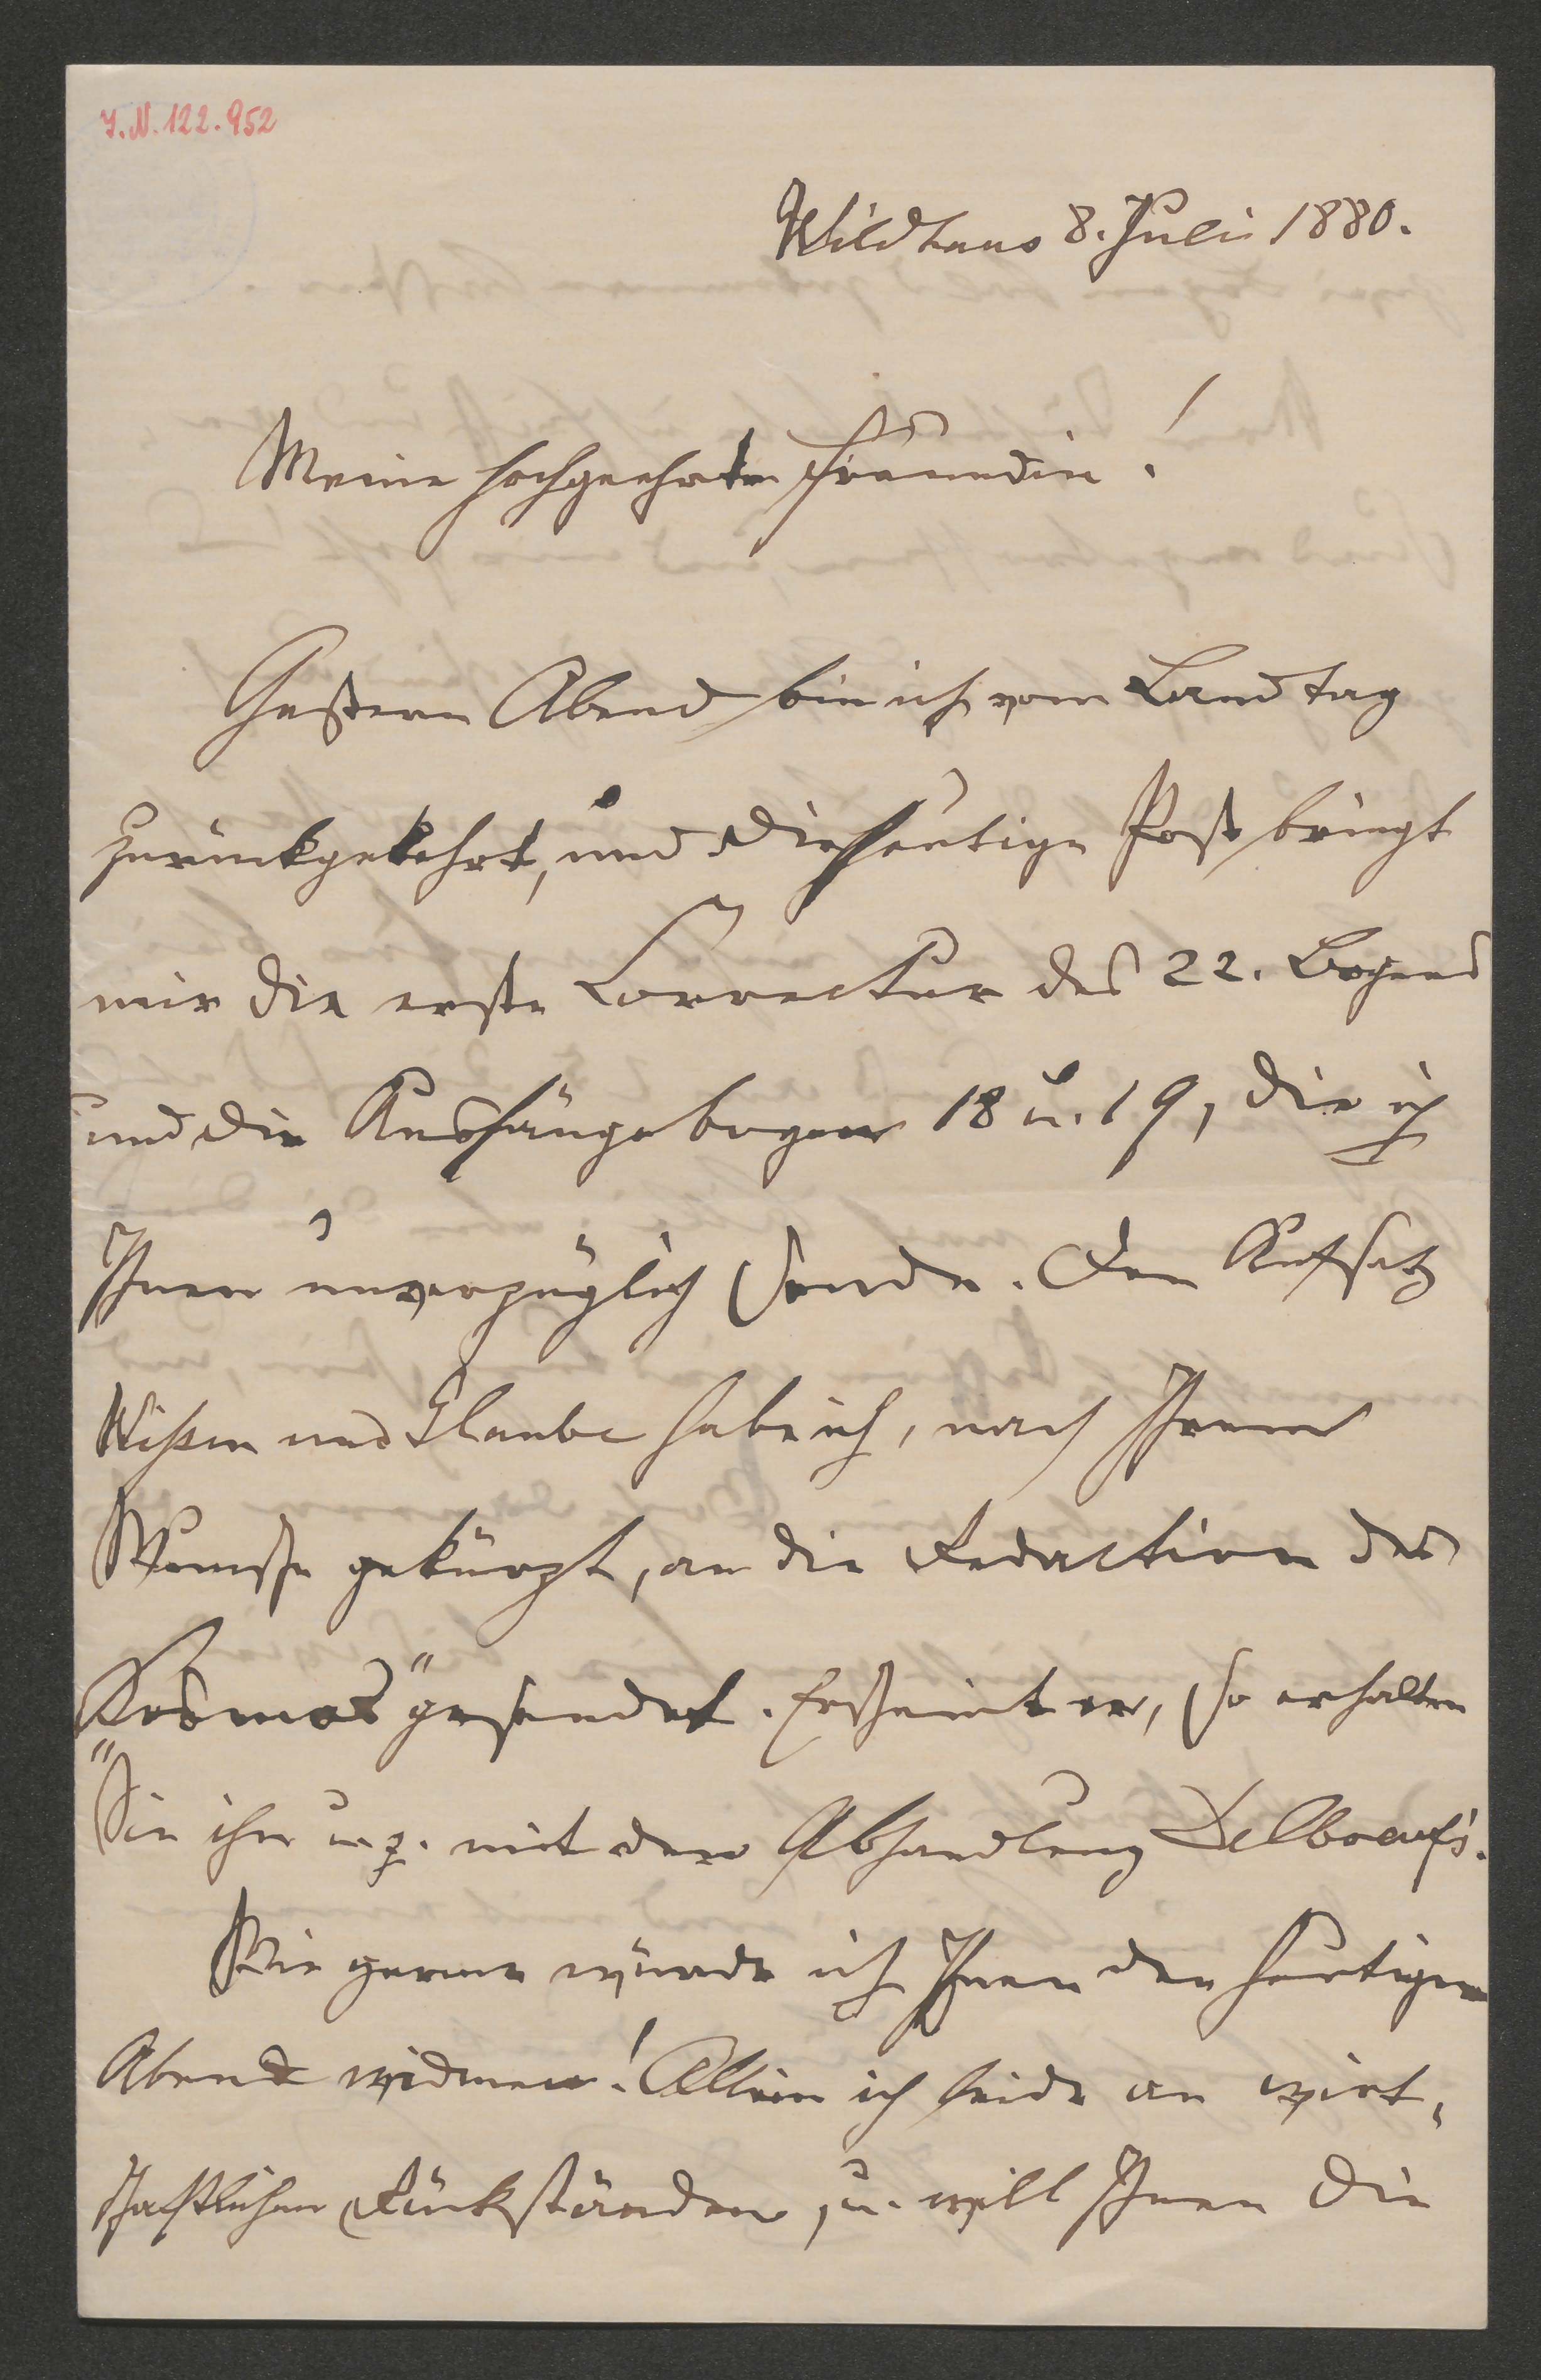 J.N. 122.952
Wildhaus 8. Juli 1880.
Meine hochgeehrte Freundin!
Gestern Abend bin ich vom Landtag
zurückgekehrt, und die heutige Post bringt
mir die erste Correctur des 22. Bogens
und die Aushängebogen 18 u. 19, die ich
Ihnen unverzüglich sende. Den Aufsatz
Wißen und Glaube habe ich, nach Ihrem
Wunsche gekürzt, an die Redaction des
„Kosmos“ gesendet. Erscheint er, so erhalten
Sie ihn u. z. mit der Abhandlung Delboeufs.
Wie gerne würde ich Ihnen den heutigen
Abend widmen! Allein ich leide an wirt-
schaftlichen Rückständen, u. will Ihnen die